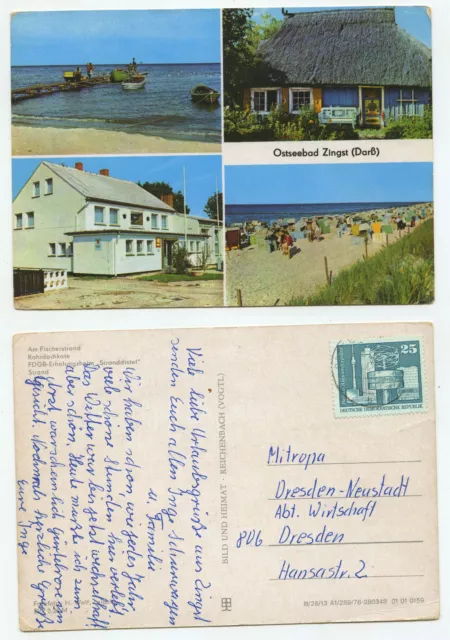 Ostseebad Zingst (Darß)
Am Fischerstrand
Rohrdachkate
FDGB-Erholungsheim „Stranddistel"
Strand
Viele liebe Urlaubsgrüße aus Zingst
senden Euch allen Inge
u. Familie
Wir haben schon, wie jedes Jahr
viele schöne Stunden hier verlebt.
Das Wetter war bis jetzt wechselhaft
aber schön. Heute mußte ich zum
Arzt
Nochmals herzlich Grüße
Eure Inge
BILD UND HEIMAT · REICHENBACH (VOGTL)
25
DEUTSCHE DEMOKRATISCHE REPUBLIK
Mitropa
Dresden-Neustadt
Abt. Wirtschaft
806 Dresden
Hansastr. 2